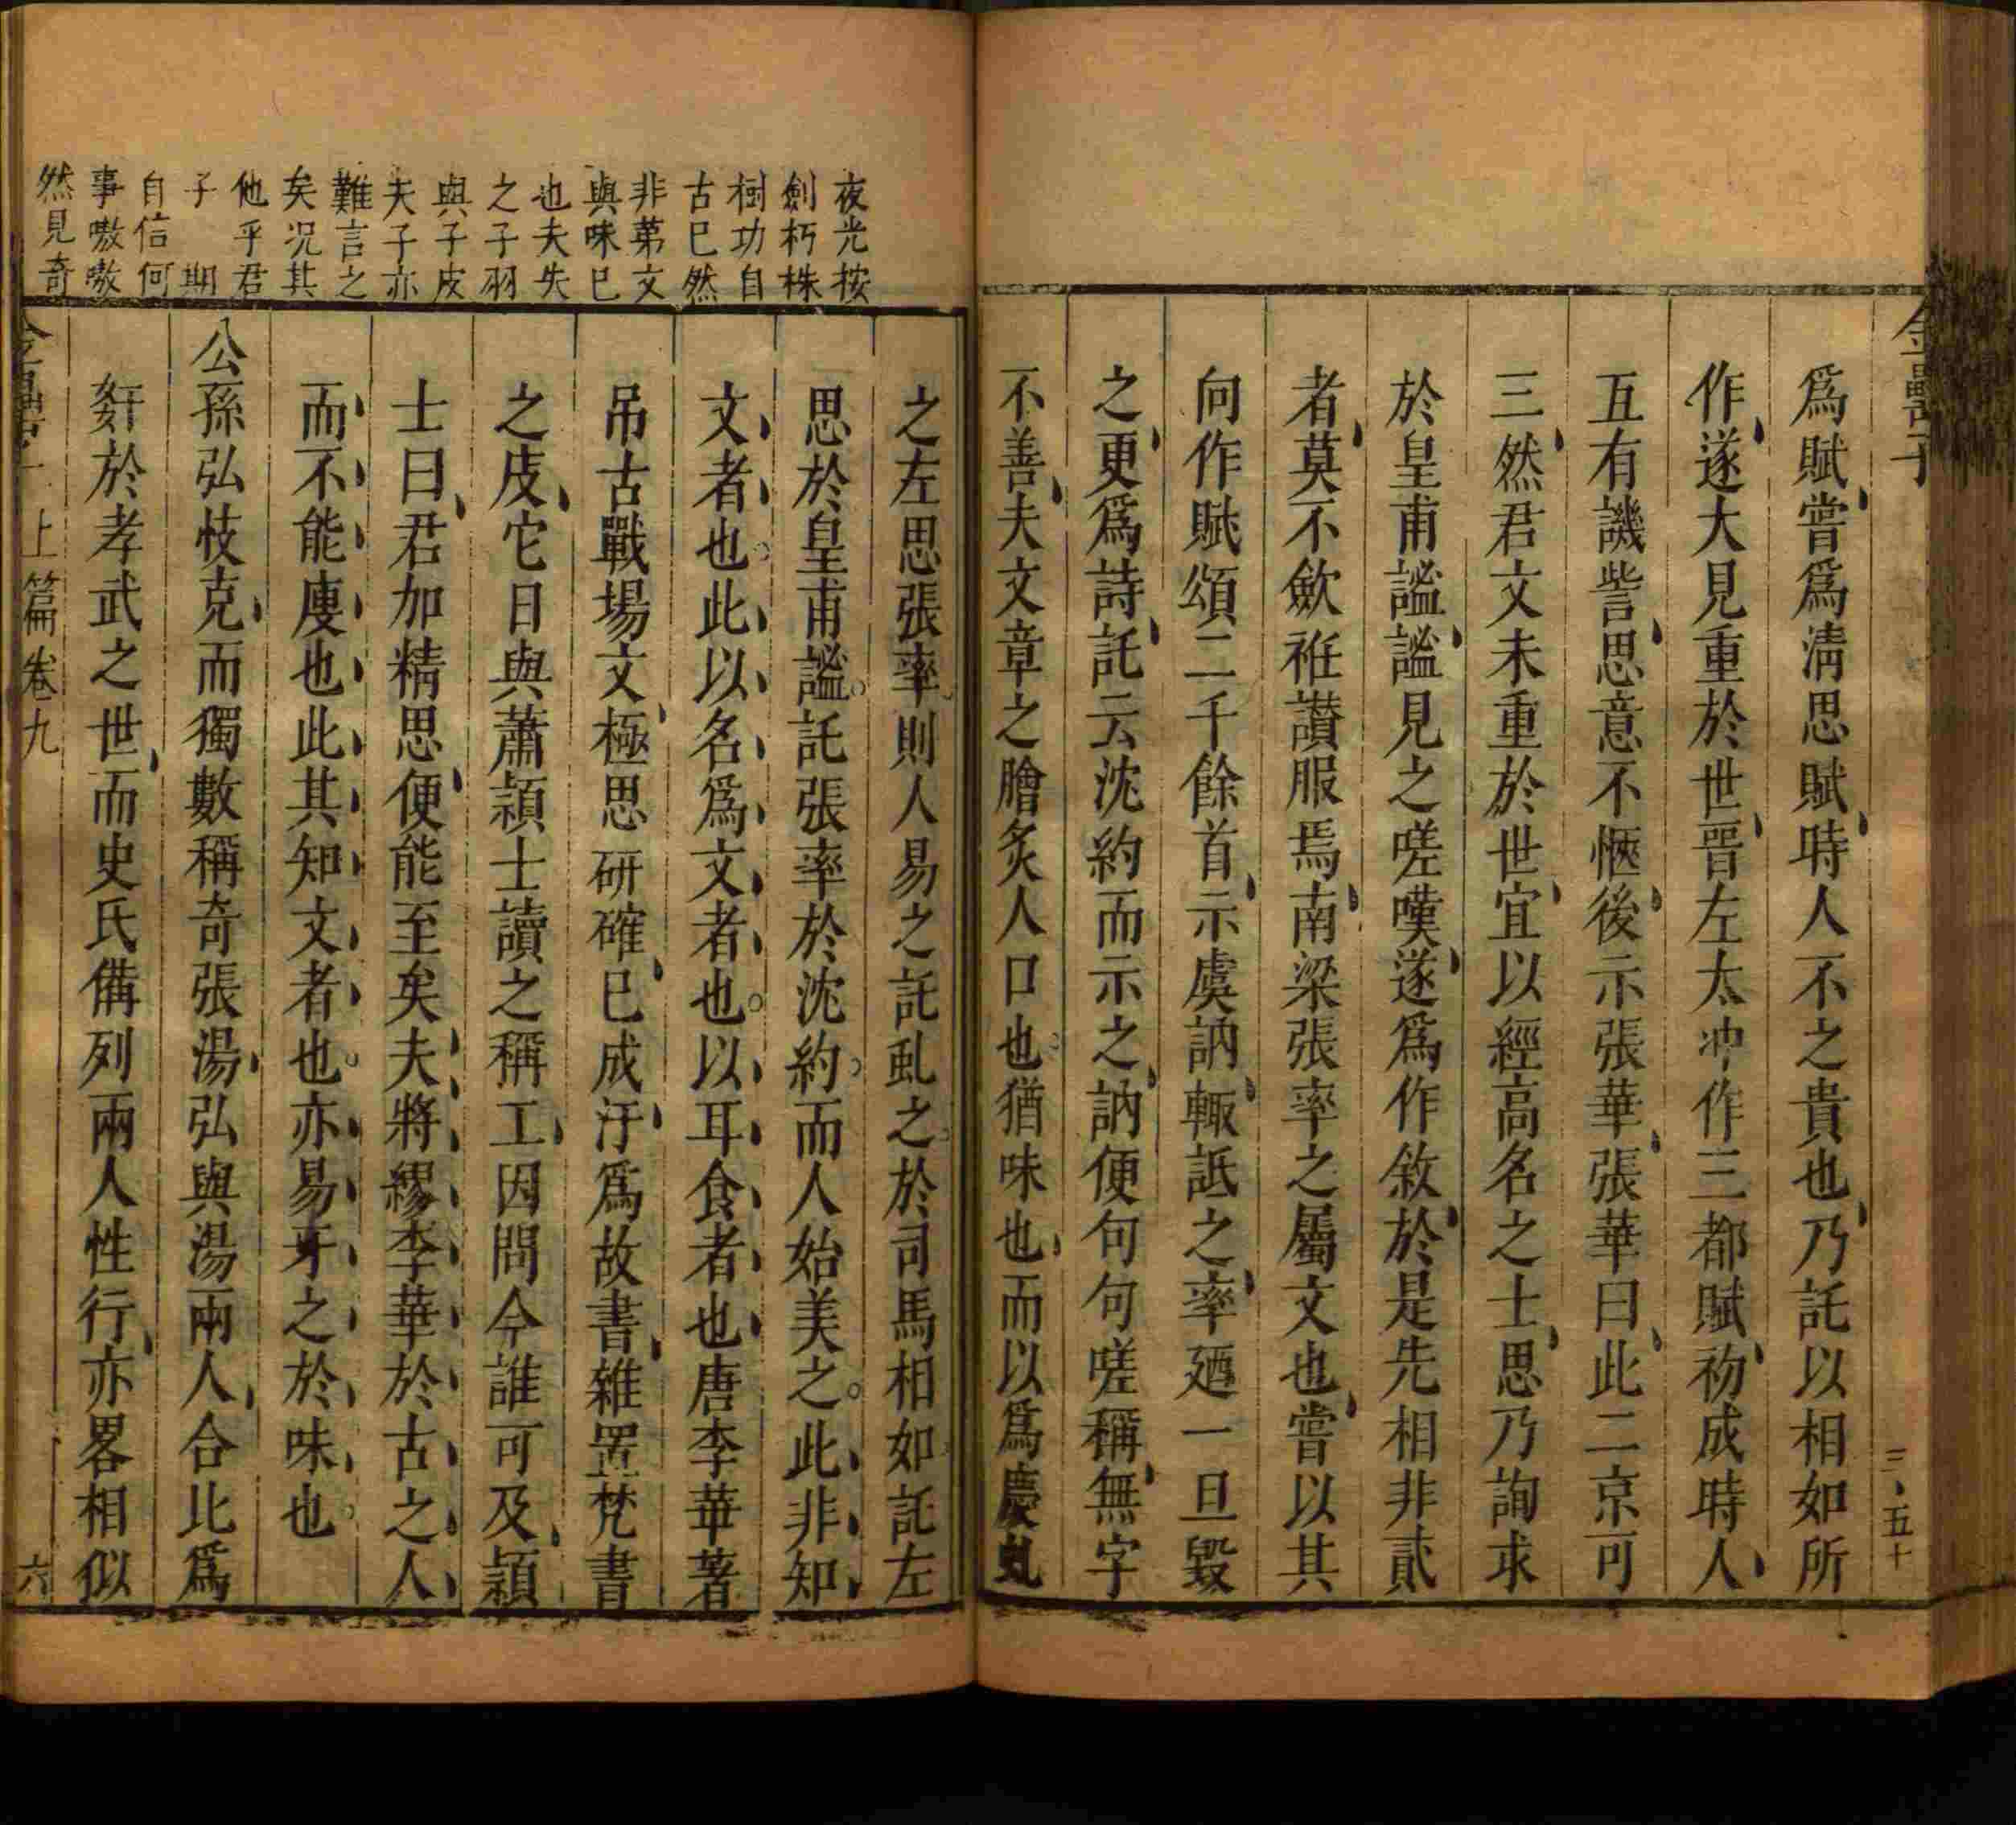 金罍子
三、五十
爲賦嘗爲淸思賦時人不之貴也乃託以相如所
作遂大見重於世晉左太冲作三都賦初成時人
互有譏訾思意不愜後示張華張華曰此二京可
三然君文未重於世宜以經高名之士思乃詢求
於皇甫謐謐見之嗟嘆遂爲作敘於是先相非貳
者莫不歛袵讃服焉南梁張率之屬文也嘗以其
向作賦頌二千餘首示虞訥輙詆之率廼一旦毀
之更爲詩託云沈約而示之訥便句句嗟稱無字
不善夫文章之膾炙人口也猶味也而以爲慶虬
夜光按
劍朽株
樹功自
古巳然
非苐文
與味巳
也夫失
之子羽
與子皮
夫子亦
難言之
矣况其
他乎君
子期
自信何
事嗷嗷
然見奇
之左思張率則人易之託虬之於司馬相如託左
思於皇甫謐託張率於沈約而人始美之此非知
文者也此以名爲文者也以耳食者也唐李華著
吊古戰場文極思研確巳成汙爲故書雜置梵書
之庋它日與蕭頴士讀之稱工因問今誰可及頴
士曰君加精思便能至矣夫將繆李華於古之人
而不能廋也此其知文者也亦易牙之於味也
公孫弘忮克而獨數稱奇張湯弘與湯兩人合比爲
姧於孝武之世而史氏備列兩人性行亦畧相似
上篇卷九
六